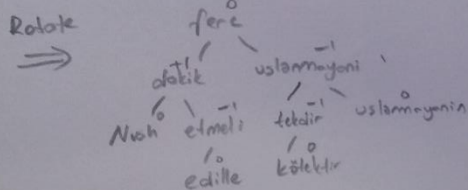 Rotate
⇒
0
fere
+1 -1
dakik uslanmayani
0 -1 -1 0
Nush etmeli tekdir uslanmayanin
0 0
edille kötektir